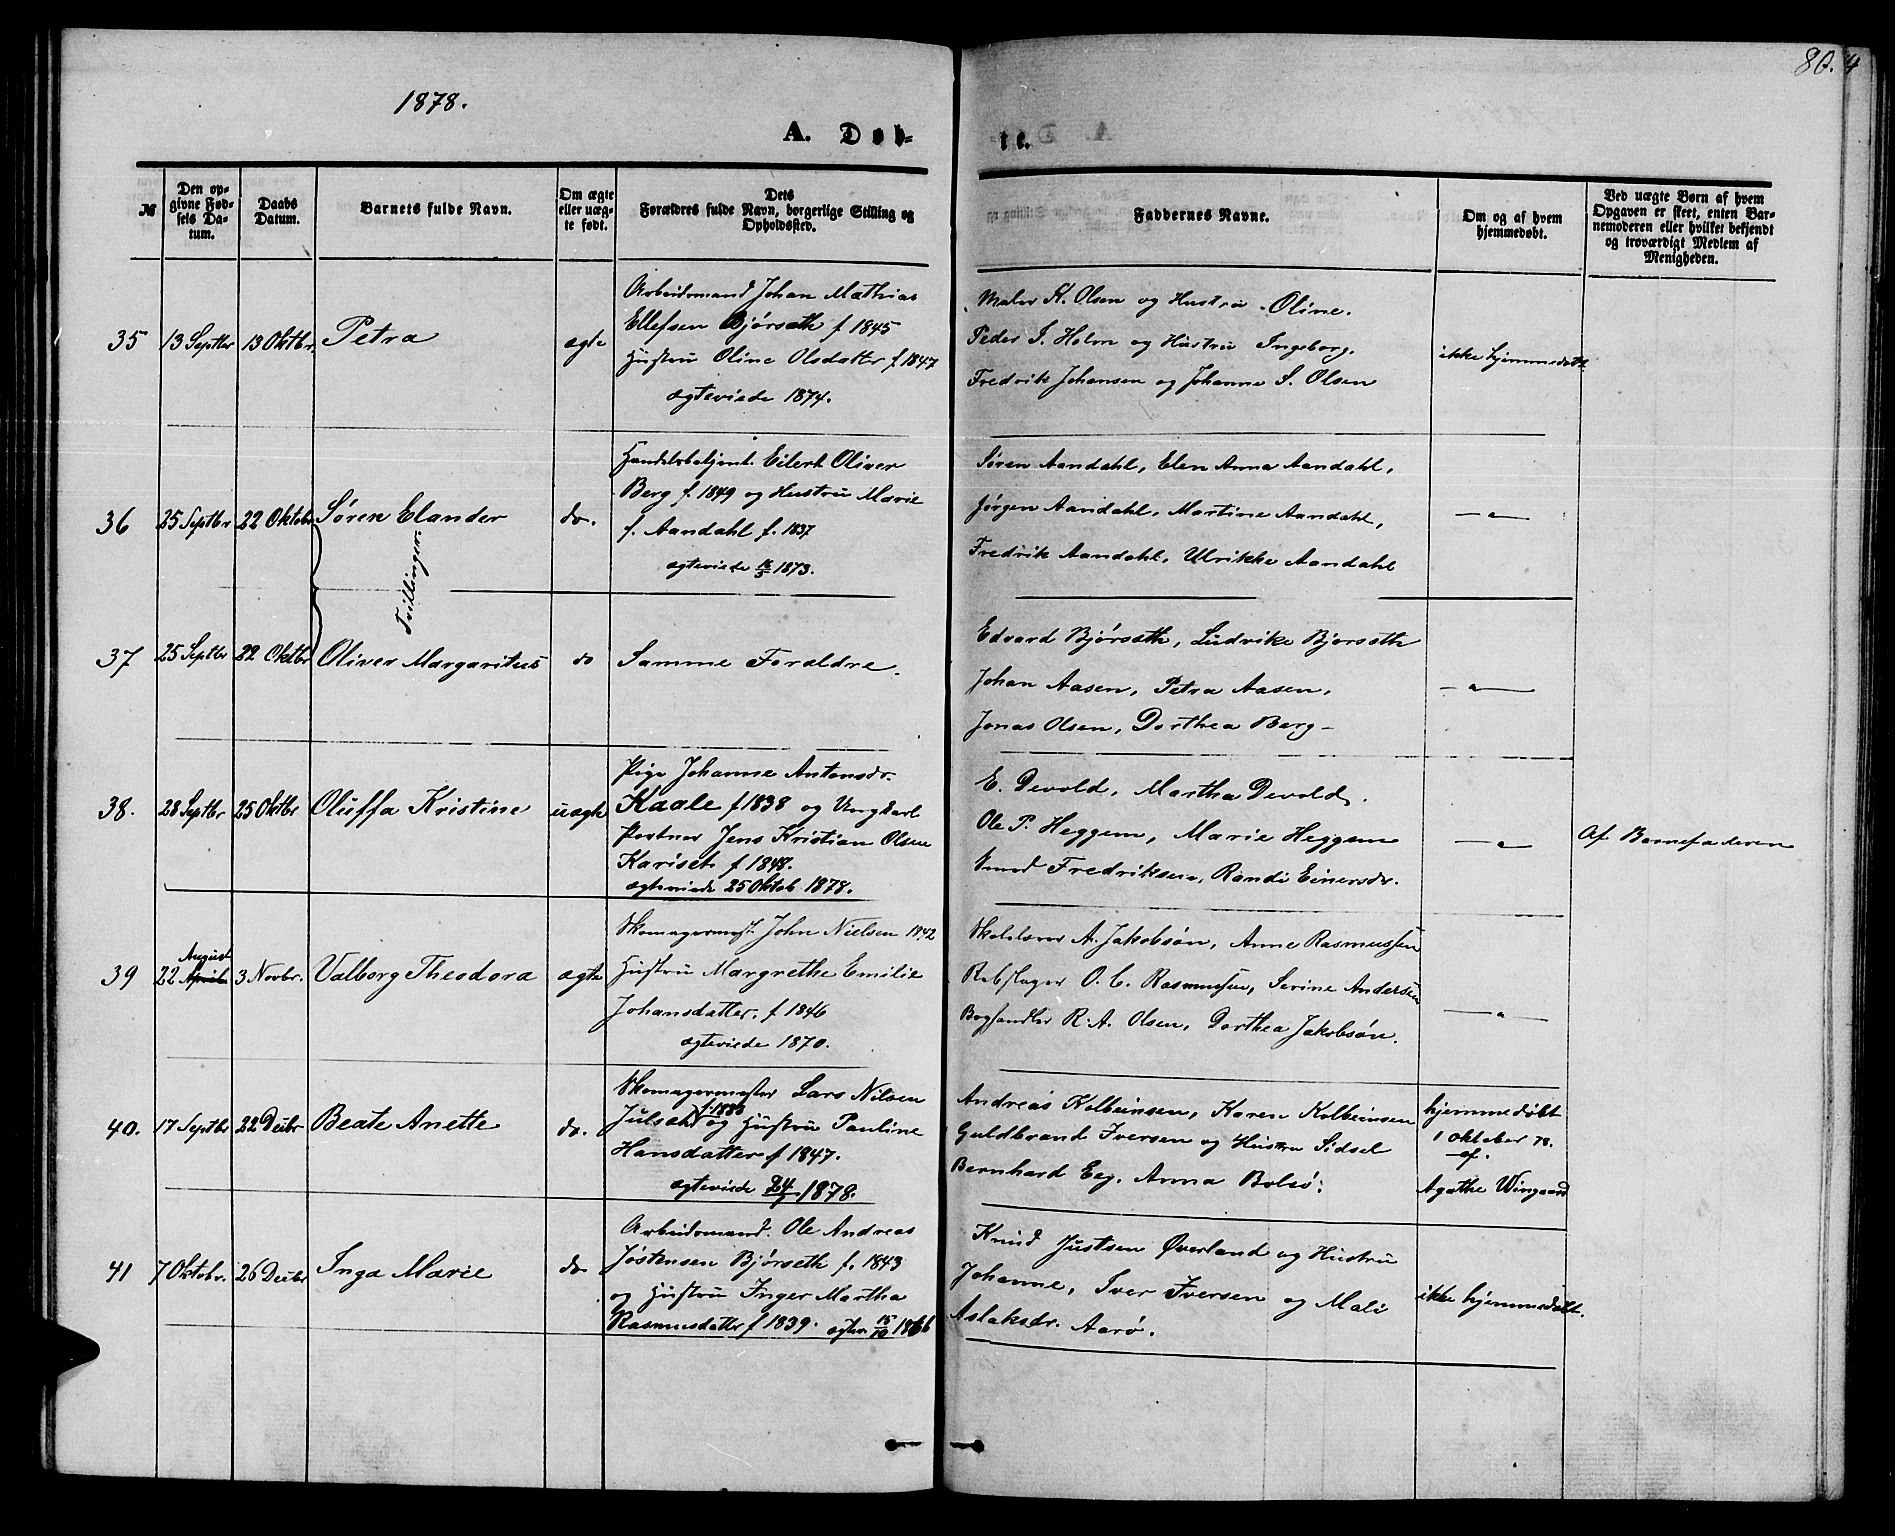 1878.
80. 4
A. Døb-
te.
№
Den op-
givne Fød-
sels Da-
tum.
Daabs
Datum.
Barnets fulde Navn.
Om ægte
eller uæg-
te født.
Dets
Forældres fulde Navn, borgerlige Stilling og
Opholdssted.
Faddernes Navne.
Om og af hvem
hjemmedøbt.
Ved uægte Børn af hvem
Opgaven er skeet, enten Bar-
nemoderen eller hvilket bekjendt
og troværdigt Medlem af
Menigheden.
35 13 Septbr 13 Oktbr. Petra ægte
Arbeidsmand Johan Mathias
Ellefsen Bjørseth f 1845
Hustru Oline Olsdatter f. 1847
ægteviede 1874.
Maler K. Olsen og Hustru Oline.
Peder I. Holm og Hustru Ingeborg.
Fredrik Johansen og Johanne S. Olsen
ikke hjemmedøbt
36 25 Septbr 22 Oktobr Søren Elander do.
Tvillinger
Handelsbetjent. Eilert Oliver
Berg f. 1849 og Hustru Marie
f. Aandahl f. 1837
ægteviede 1873.
Søren Aandahl, Elen Anna Aandahl,
Jørgen Aandahl, Martine Aandahl,
Fredrik Aandahl, Ulrikke Aandahl
—"—
37 25 Septbr 22 Oktbr Oliver Margaritus do Samme Forældre.
Edvard Bjørseth, Ludvike Bjørseth
Johan Aasen, Petra Aasen,
Jonas Olsen, Dorthea Berg-
—"—
38. 28 Septbr 25 Oktbr Oluffa Kristine uægte
Pige Johanne Antonsdr.
Kaale f 1838 og Ungkarl
Portner Jens Kristian Olsen
Kariset f 1848.
ægteviede 25 Oktob 1878.
E. Devold, Martha Devold,
Ole P. Heggem, Marie Heggem
Fredriksen, Randi Einersdr.
—"—
Af Barnefaderen
39 22 April August 3 Novbr. Valborg Theodora ægte
Skomagermest. John Nielsen 1842
Hustru Margrethe Emilie
Johansdatter. f 1846
ægteviede 1870.
A. Jakobsøn, Anne Rasmussen
Rebslager O. C. Rasmussen, Serine Andersen
Boghandler R. A. Olsen, Dorthea Jakobsøn.
—"—
40. 17 Septbr 22 Decbr Beate Anette do.
Skomagermester Lars Nilsen
Julseth og Hustru Pauline
Hansdatter f 1847.
ægteviede 1878.
Andreas Kolbeinsen, Karen Kolbeinsen
Guldbrand Iversen og Hustru Sidsel
Bernhard Eeg, Anna Bolsø.
hjemmedøbt
1 Oktober 78.
af.
Agathe Wingaard
41 7 Oktobr. 26 Decbr Inga Marie do
Arbeidsmand. Ole Andreas
Jøstensen Bjørseth f. 1843
og Hustru Inger Martha
Rasmusdatter f 1839. ægtev. 15/10 1866
Knud Justsen Øverland og Hustru
Johanne, Iver Iversen og Mali
Aslaksdr. Aarø.
ikke hjemmedøbt.